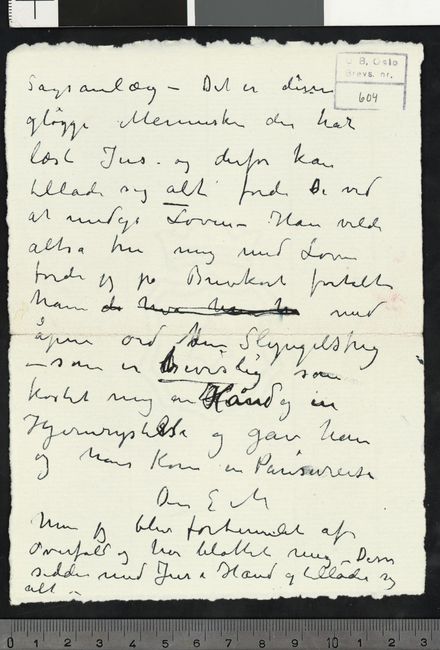 U. B. Oslo
Brevs. nr.
604
Sagsanlæg – Det er disse
gløgge Mennesker der har
læst Jus – og derfor kan
tillade sig alt fordi De ved
at undgå Loven – Han vilde
altså true mig med Loven
fordi jeg på Brevkort fortalte
ham med
åpne ord Slyngelstreg
– som er bevislig som
kostet mig en Hånd og en
Hjernrystelse og gav ham
og hans Kone en Pariserreise
Din E M
Men jeg blir fortumlet af
Overfald og har blottet mig – Disse
sidder med Jus i Hånd og tillader sig
alt –
0 1 2 3 4 5 6 7 8 9 10 1 2 3